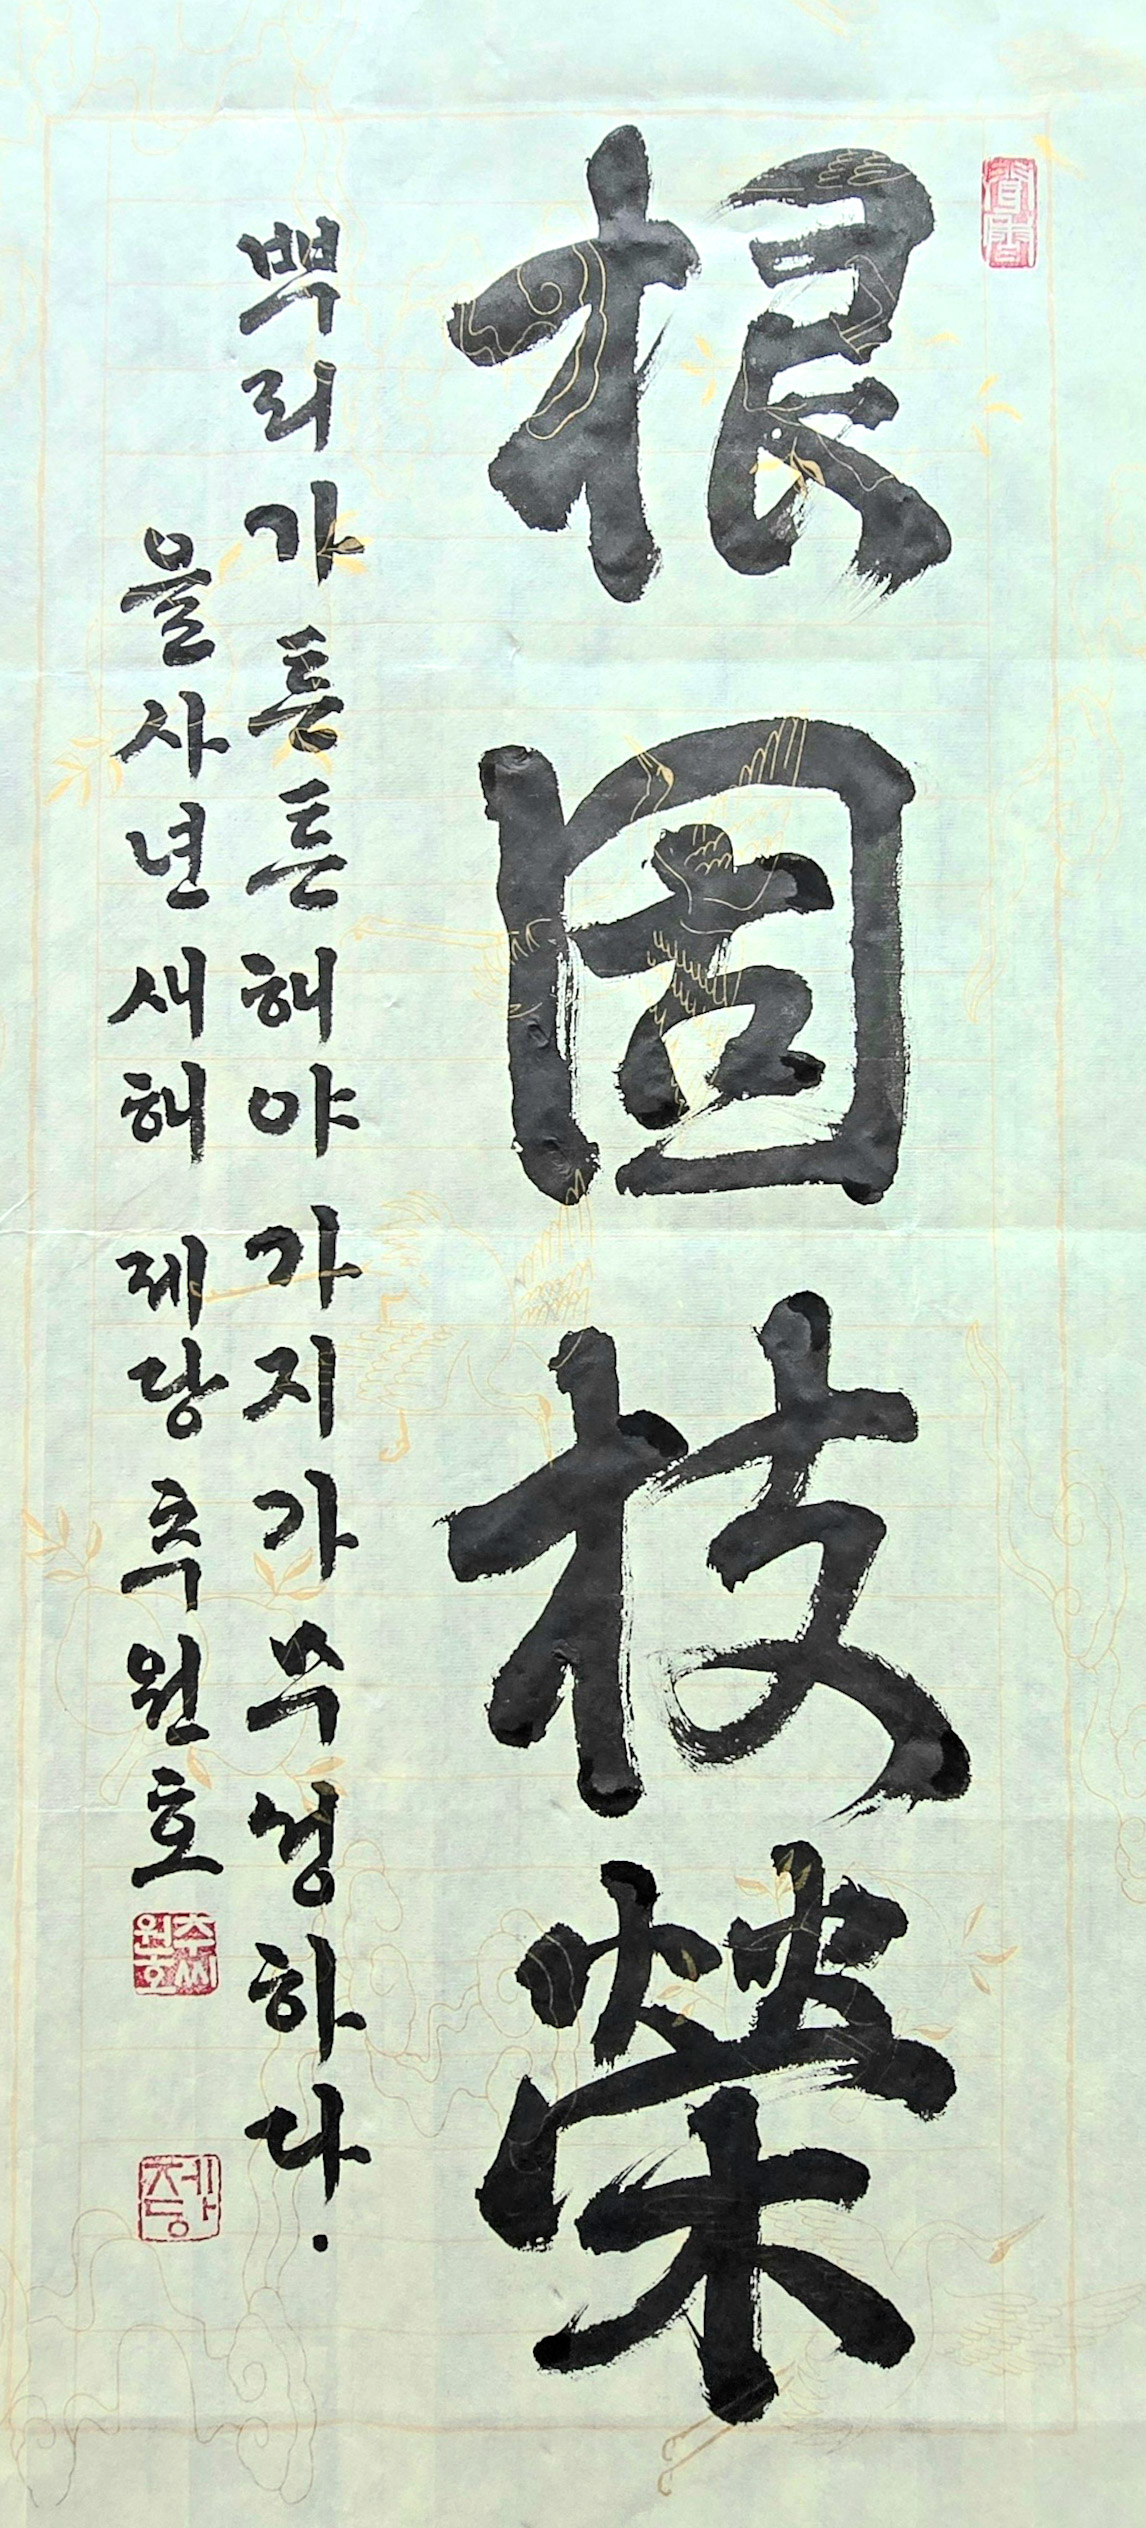 根固枝榮
뿌리가 튼튼해야 가지가 무성하다.
을사년 새해 제당 추원호
추씨
원호
제당